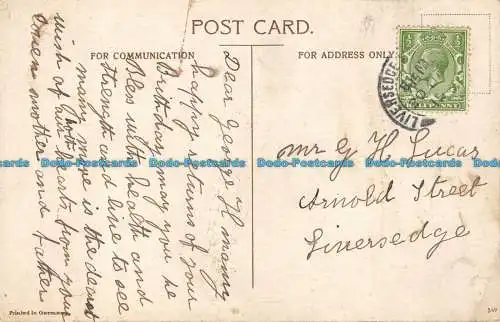 POST CARD.
FOR COMMUNICATION
FOR ADDRESS ONLY
Dear George H many
happy returns of your
Birthday may you be
Bles with health and
strength and live to see
many more is the dearest
wish of both hearts from your
mother and father
Mr G H Lucas
Arnold Street
Liversedge
LIVERSEDGE
HALFPENNY
Printed in Germany
Dodo-Postcards Dodo-Postcards Dodo-Postcards Dodo-Postcards Dodo-Postcards
Dodo-Postcards Dodo-Postcards Dodo-Postcards Dodo-Postcards Dodo-Postcards